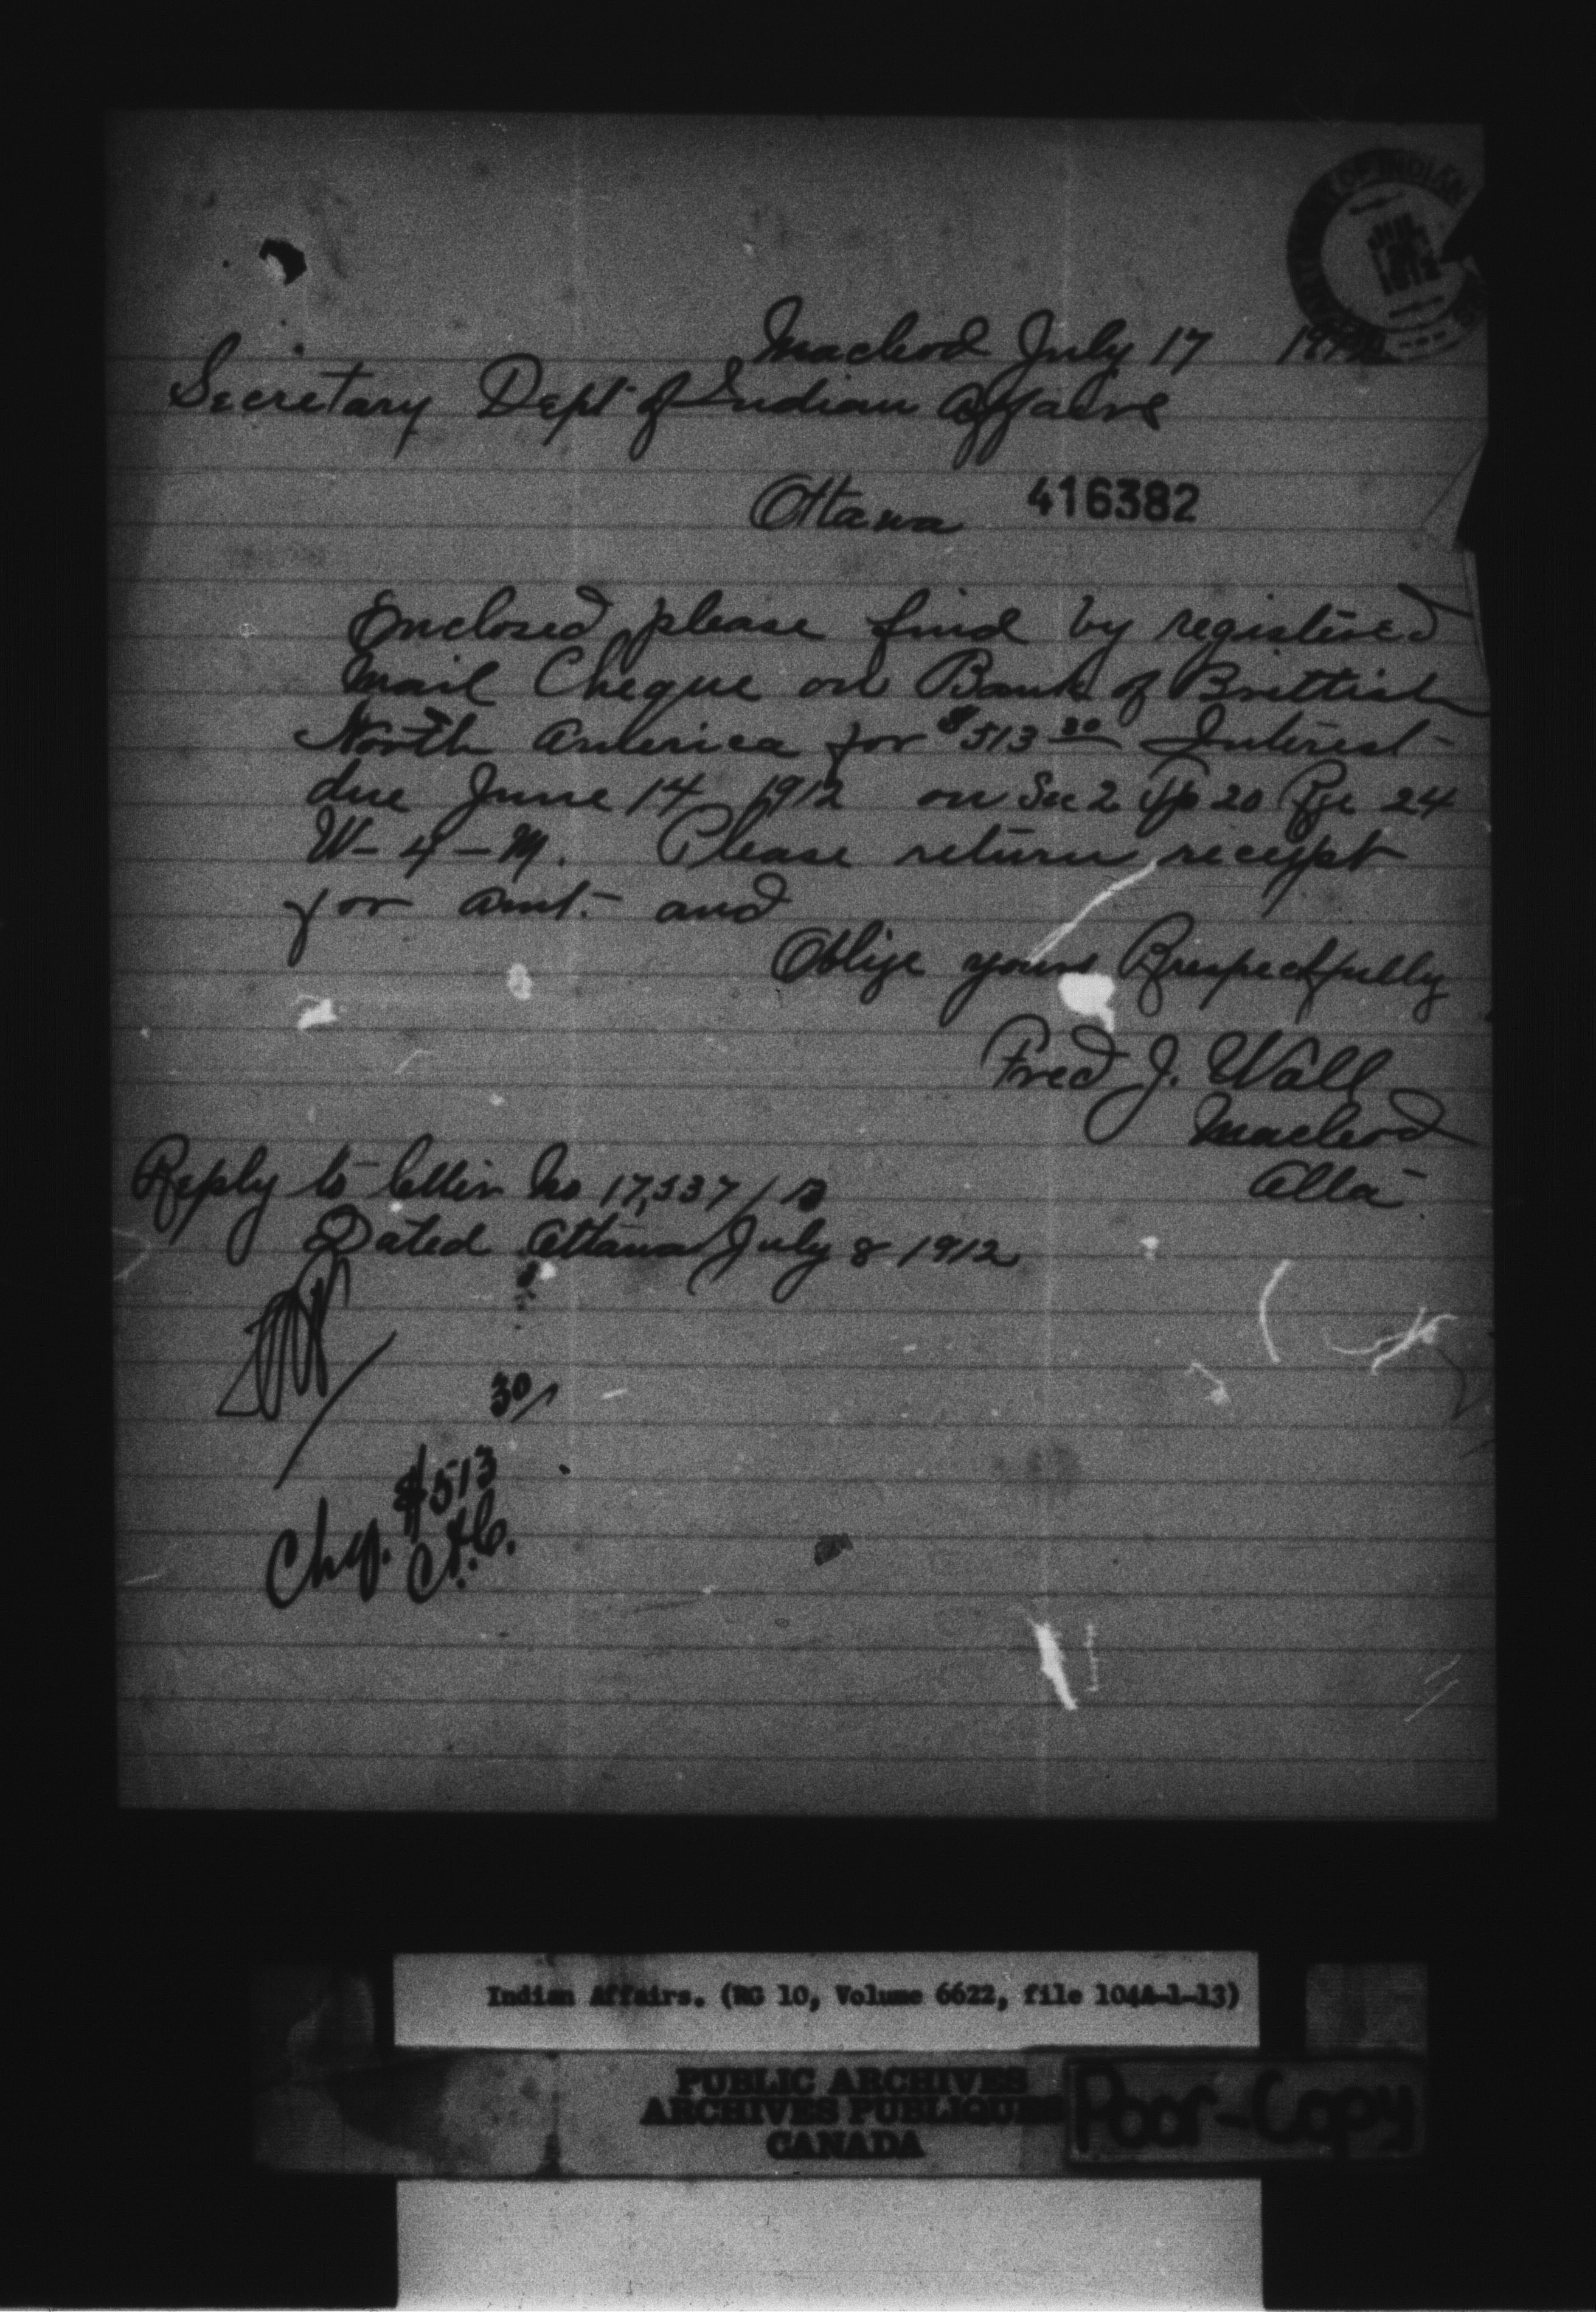 DEPARTMENT OF INDIAN
JUL
1912
Macleod July 17 1912
Secretary Dept of Indian Affairs
Ottawa 416382
Enclosed please find by registered
Mail Cheque on Bank of Brittish
North America for $513 30 Interest
due June 14 1912 on Sec 2 Tp 20 Rge 24
W-4-M. Please return receipt
for amt. and
Oblige yours Respectfully
Fred J. Wall
Macleod
Alta
Reply to letter No 17,537/13
Dated Ottawa July 8 1912
30/
$513
Chq.
Indian Affairs. (RG 10, Volume 6622, file 104A-1-13)
PUBLIC ARCHIVES
ARCHIVES PUBLIQUES
CANADA
Poor-Copy